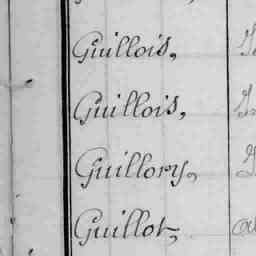 Guillois,
Guillois,
Guillory,
Guillot,